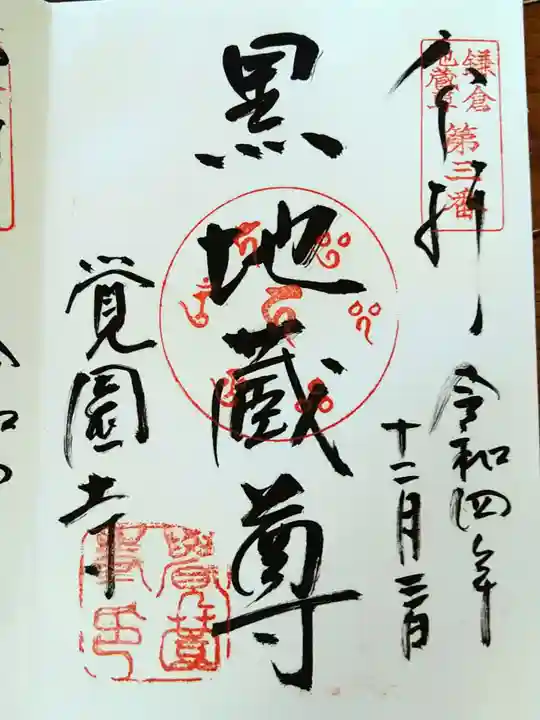 奉拝
鎌倉
地蔵尊
第三番
令和四年
十二月三日
黒地蔵尊
覚園寺